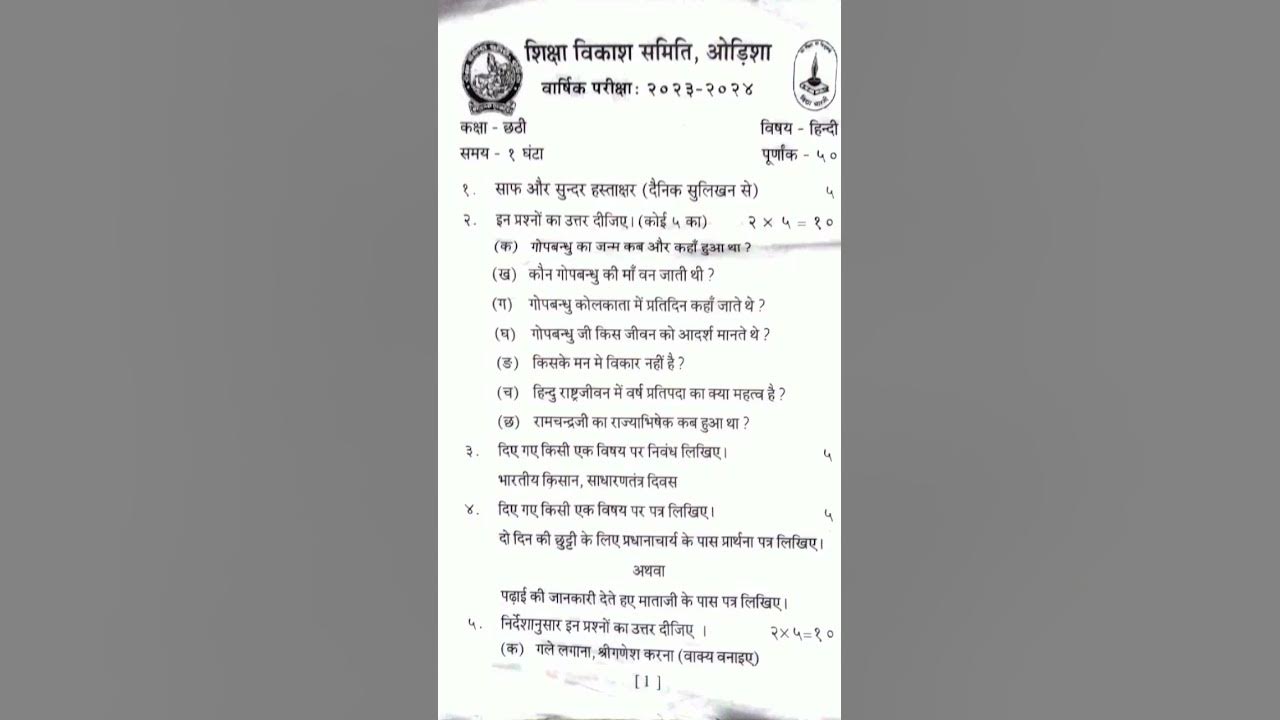 शिक्षा विकाश समिति, ओड़िशा
वार्षिक परीक्षा: २०२३-२०२४
कक्षा - छठी
विषय - हिन्दी
समय - १ घंटा
पूर्णांक - ५०
१. साफ और सुन्दर हस्ताक्षर (दैनिक सुलिखन से) ५
२. इन प्रश्नों का उत्तर दीजिए। (कोई ५ का) २ × ५ = १०
(क) गोपबन्धु का जन्म कब और कहाँ हुआ था ?
(ख) कौन गोपबन्धु की माँ वन जाती थी ?
(ग) गोपबन्धु कोलकाता में प्रतिदिन कहाँ जाते थे ?
(घ) गोपबन्धु जी किस जीवन को आदर्श मानते थे ?
(ङ) किसके मन मे विकार नहीं है ?
(च) हिन्दु राष्ट्रजीवन में वर्ष प्रतिपदा का क्या महत्व है ?
(छ) रामचन्द्रजी का राज्याभिषेक कब हुआ था ?
३. दिए गए किसी एक विषय पर निवंध लिखिए। ५
भारतीय क़िसान, साधारणतंत्र दिवस
४. दिए गए किसी एक विषय पर पत्र लिखिए। ५
दो दिन की छुट्टी के लिए प्रधानाचार्य के पास प्रार्थना पत्र लिखिए।
अथवा
पढ़ाई की जानकारी देते हए माताजी के पास पत्र लिखिए।
५. निर्देशानुसार इन प्रश्नों का उत्तर दीजिए । २×५=१०
(क) गले लगाना, श्रीगणेश करना (वाक्य वनाइए)
[1]